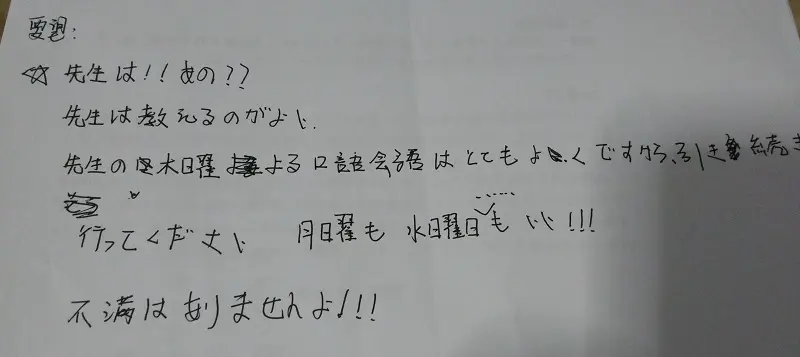 要望:
☆ 先生は!!あの??
先生は教えるのがよい.
先生の木曜日よる口語会話はとてもよくですから、引き続き
行ってください 月曜日も 水曜日も いい!!!
不満はありませんよ!!!